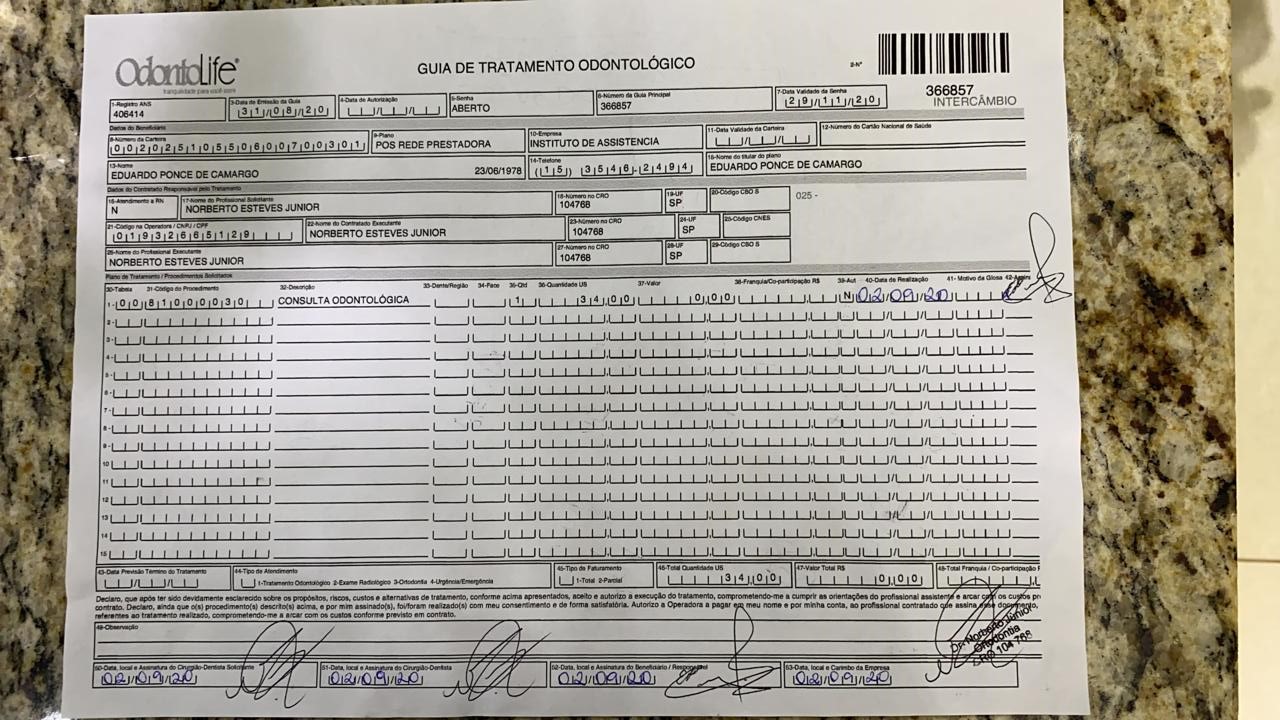 OdontoLife®
tranquilidade para você sorrir
GUIA DE TRATAMENTO ODONTOLÓGICO
2-Nº
366857
INTERCÂMBIO
1-Registro ANS 3-Data de Emissão da Guia 4-Data de Autorização 5-Senha 6-Número da Guia Principal 7-Data Validade da Senha
406414 31/08/20 ABERTO 366857 29/11/20
Dados do Beneficiário
8-Número da Carteira 9-Plano 10-Empresa 11-Data Validade da Carteira 12-Número do Cartão Nacional de Saúde
00202510550600700301 POS REDE PRESTADORA INSTITUTO DE ASSISTENCIA
13-Nome 14-Telefone 15-Nome do titular do plano
EDUARDO PONCE DE CAMARGO 23/06/1978 (15) 3546-2494 EDUARDO PONCE DE CAMARGO
Dados do Contratado Responsável pelo Tratamento
16-Atendimento a RN 17-Nome do Profissional Solicitante 18-Número no CRO 19-UF 20-Código CBO S
N NORBERTO ESTEVES JUNIOR 104768 SP 025 -
21-Código na Operadora / CNPJ / CPF 22-Nome do Contratado Executante 23-Número no CRO 24-UF 25-Código CNES
01932665129 NORBERTO ESTEVES JUNIOR 104768 SP
26-Nome do Profissional Executante 27-Número no CRO 28-UF 29-Código CBO S
NORBERTO ESTEVES JUNIOR 104768 SP
Plano de Tratamento / Procedimentos Solicitados
30-Tabela 31-Código do Procedimento 32-Descrição 33-Dente/Região 34-Face 35-Qtd 36-Quantidade US 37-Valor 38-Franquia/Co-participação R$ 39-Aut 40-Data de Realização 41- Motivo da Glosa
1- 00 81000030 CONSULTA ODONTOLÓGICA 1 34,00 0,00 N 02/09/20
2-
3-
4-
5-
6-
7-
8-
9-
10
11
12
13
14
15
43-Data Previsão Término do Tratamento 44-Tipo de Atendimento 45-Tipo de Faturamento 46-Total Quantidade US 47-Valor Total R$ 48-Total Franquia / Co-participação
1-Tratamento Odontológico 2-Exame Radiológico 3-Ortodontia 4-Urgência/Emergência 1-Total 2-Parcial 34,00 0,00
Declaro, que após ter sido devidamente esclarecido sobre os propósitos, riscos, custos e alternativas de tratamento, conforme acima apresentados, aceito e autorizo a execução do tratamento, comprometendo-me a cumprir as orientações do profissional assistente e arcar com os custos
contrato. Declaro, ainda que o(s) procedimento(s) descrito(s) acima, e por mim assinado(s), foi/foram realizado(s) com meu consentimento e de forma satisfatória. Autorizo a Operadora a pagar em meu nome e por minha conta, ao profissional contratado que assina esse documento,
referentes ao tratamento realizado, comprometendo-me a arcar com os custos conforme previsto em contrato.
49-Observação
Dr. Norberto Júnior
Ortodontia
CRO 104 768
50-Data, local e Assinatura do Cirurgião-Dentista Solicitante 51-Data, local e Assinatura do Cirurgião-Dentista 52-Data, local e Assinatura do Beneficiário / Responsável 53-Data, local e Carimbo da Empresa
02/09/20 02/09/20 02/09/20 02/09/20